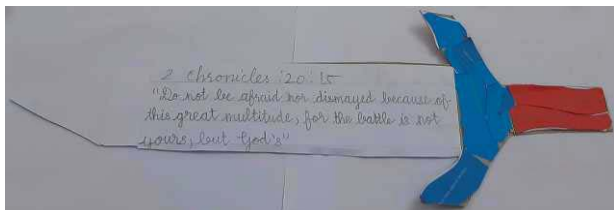 2 Chronicles :20: 15
"Do not be afraid nor dismayed because of
this great multitude, for the battle is not
yours, but God's"